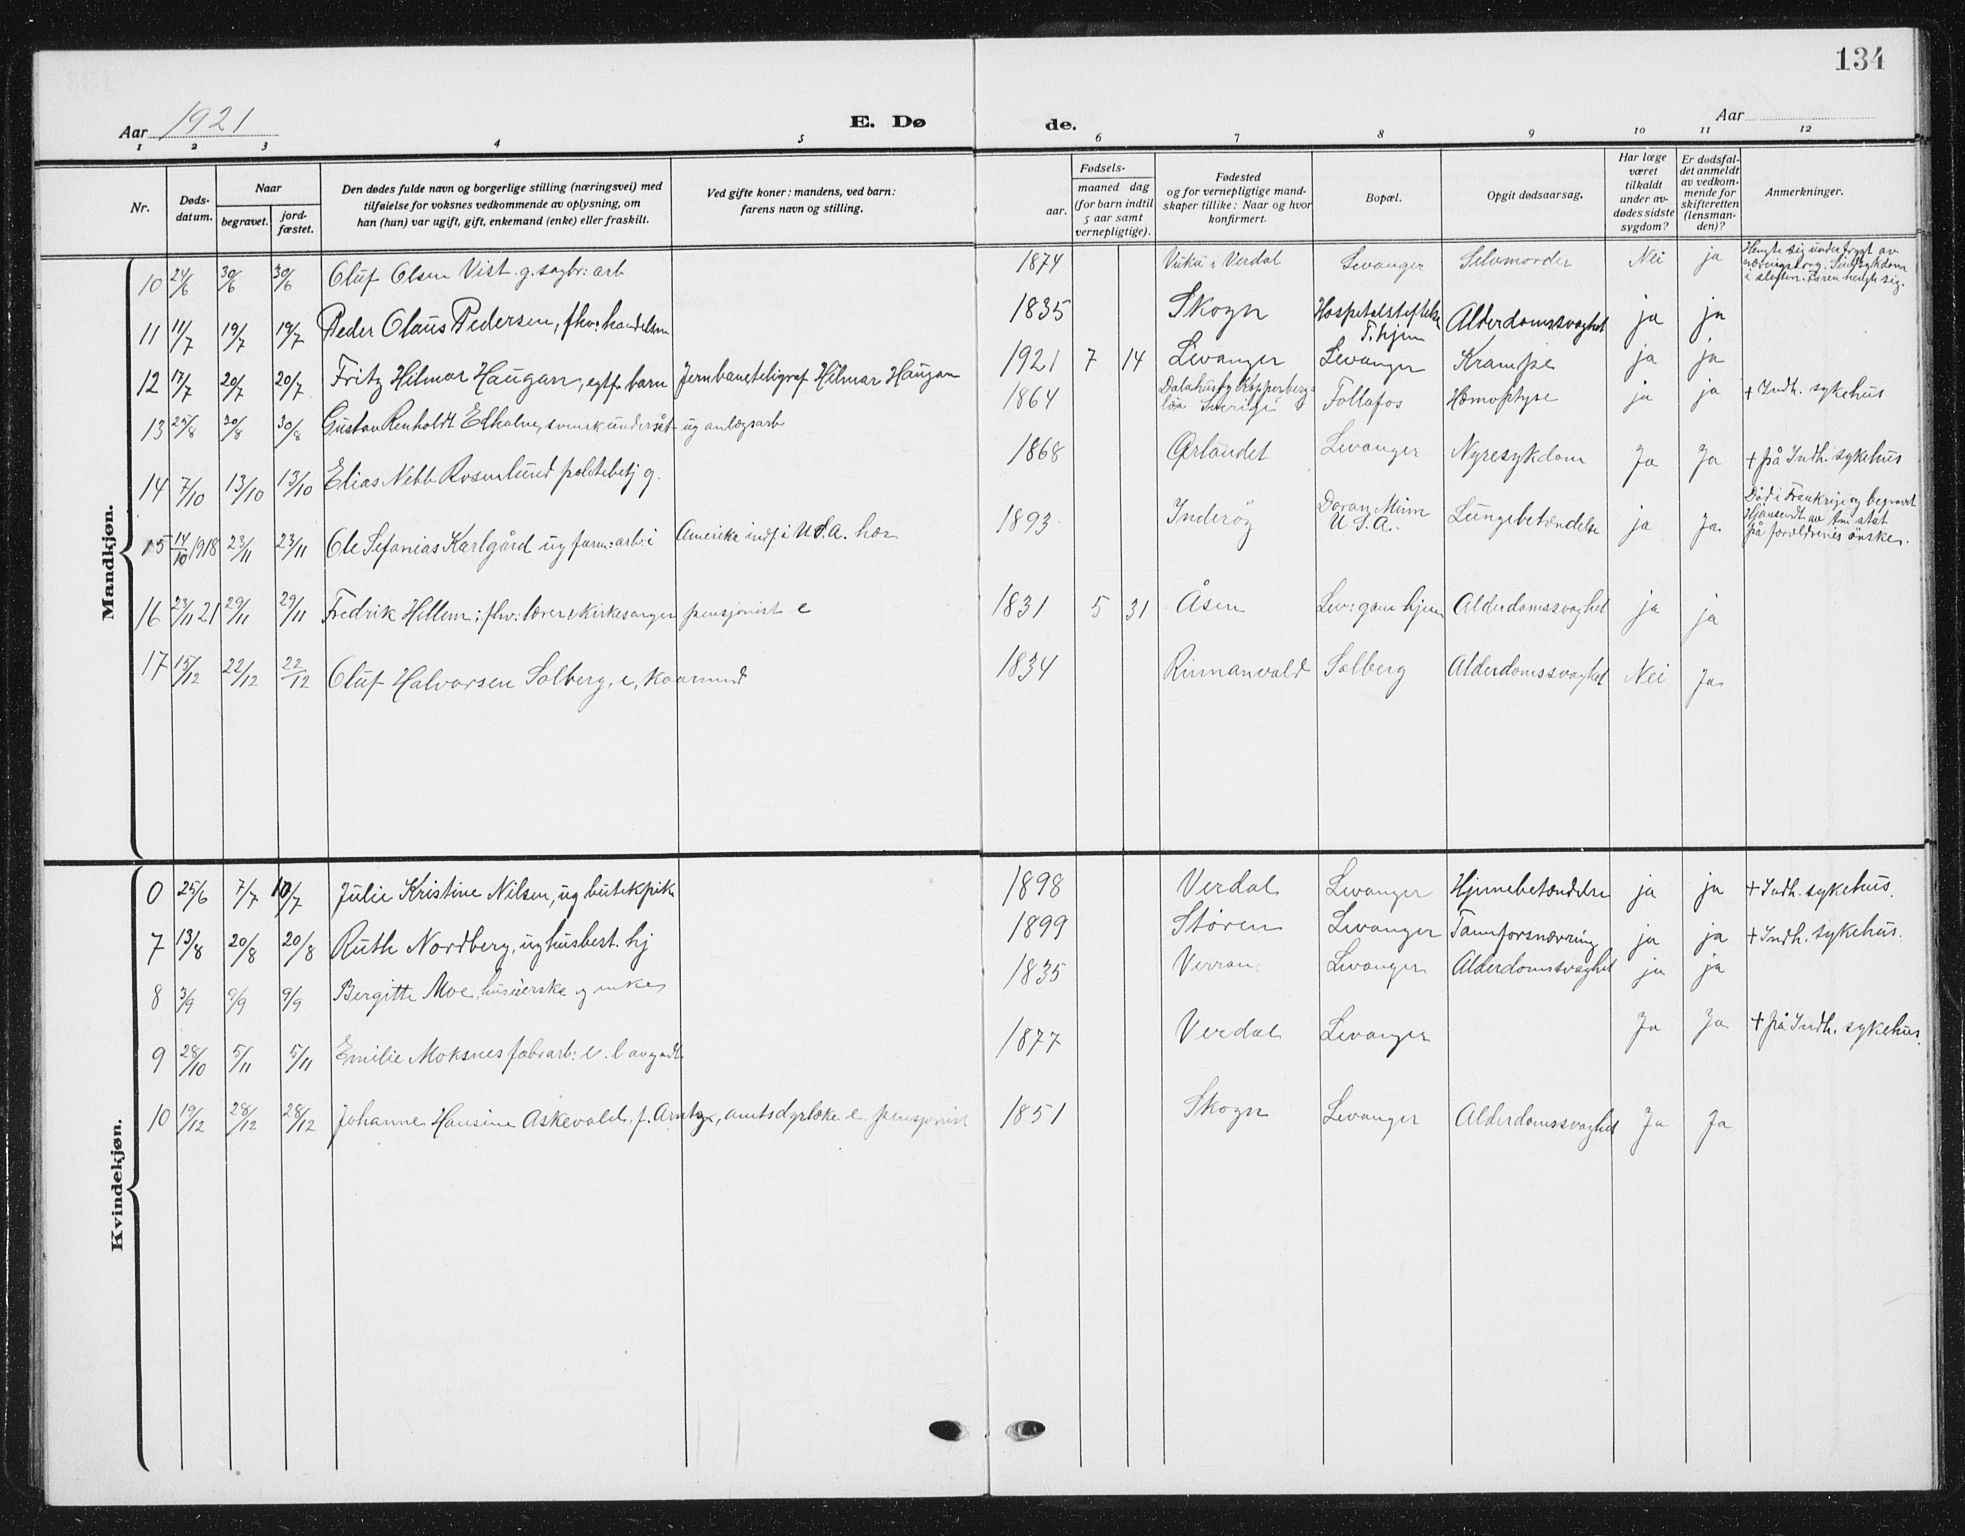 134
Aar 1921 E. Dø de. Aar
1 2 3 4 5 6 7 8 9 10 11 12
Nr. Døds-datum. Naar begravet. jord-fæstet. Den dødes fulde navn og borgerlige stilling (næringsvei) med tilføielse for voksnes vedkommende av oplysning, om han (hun) var ugift, gift, enkemand (enke) eller fraskilt. Ved gifte koner: mandens, ved barn: farens navn og stilling. Fødsels- aar. maaned dag (for barn indtil 5 aar samt vernepligtige). Fødested og for vernepligtige mand-skaper tillike: Naar og hvor konfirmert. Bopæl. Opgit dødsaarsag. Har læge været tilkaldt under av-dødes sidste sygdom? Er dødsfal-det anmeldt av vedkom-mende for skifteretten (lensman-den)? Anmerkninger.
Mandkjøn.
10 24/6 30/6 30/6 Oluf Olsen Vist. g. sagbr: arb 1874 Vuku i Verdal Levanger Selvmorder Nei ja Hengte sig under frygt av næringssorg. Sindsykdom i slegten. Faren hengte sig.
11 11/7 19/7 19/7 Peder Olaus Pedersen, fhv: handelsm 1835 Skogn Hospitalstiftelse T.hjem Alderdomssvaghet ja ja
12 17/7 20/7 20/7 Fritz Hilmar Haugan, egtf. barn Jernbanetelegraf. Hilmar Haugan 1921 7 14 Levanger Levanger Krampe ja ja
13 25/8 30/8 30/8 Gustav Renholdt Edholm, svensk undersåt ug anlægsarb 1864 Sverige Follafos Hæmoptyse ja ja + Indh. sykehus
14 7/10 13/10 13/10 Elias Nebb Rosenlund politibetj g. 1868 Ørlandet Levanger Nyresykdom Ja Ja + på Indh. sykehus
15 14/10 1918 23/11 23/11 Ole Sefanias Karlgård ug farm: arb: i Amerika indf i U.S.A. hær 1893 Inderøy Doran Minn U.S.A. Lungebetændelse ja Ja Död i Frankrig og begravet Hjemsendt av Am stat på forældrenes önske.
16 23/11 21 29/11 29/11 Fredrik Hellem; fhv: lærer & kirkesanger pensjonist e 1831 5 31 Åsen Lev: gam hjem Alderdomssvaghet ja ja
17 15/12 22/12 22/12 Oluf Halvorsen Salberg, e, kaarmand 1834 Rinnanvald Salberg Alderdomssvaghet Nei Ja
Kvindekjøn.
0 25/6 7/7 10/7 Julie Kristine Nilsen, ug butikpike 1898 Verdal Levanger Hjernebetændelse ja ja + Indh. sykehus.
7 13/8 20/8 20/8 Ruth Nordberg, ug husbest. hj 1899 Støren Levanger Tarmforsnævring ja ja + Indh. sykehus.
8 3/9 9/9 9/9 Bergitte Moe, huseierske og enke 1835 Verran Levanger Alderdomssvaghet ja ja
9 28/10 5/11 5/11 Emilie Moksnes fabr arb: e. l av gadt. 1877 Verdal Levanger Ja Ja + på Indh. sykehus.
10 19/12 28/12 28/12 Johanne Hansine Askevold, f. Arntz, amtsdyrlæke e. pensjonist 1851 Skogn Levanger Alderdomssvaghet Ja Ja